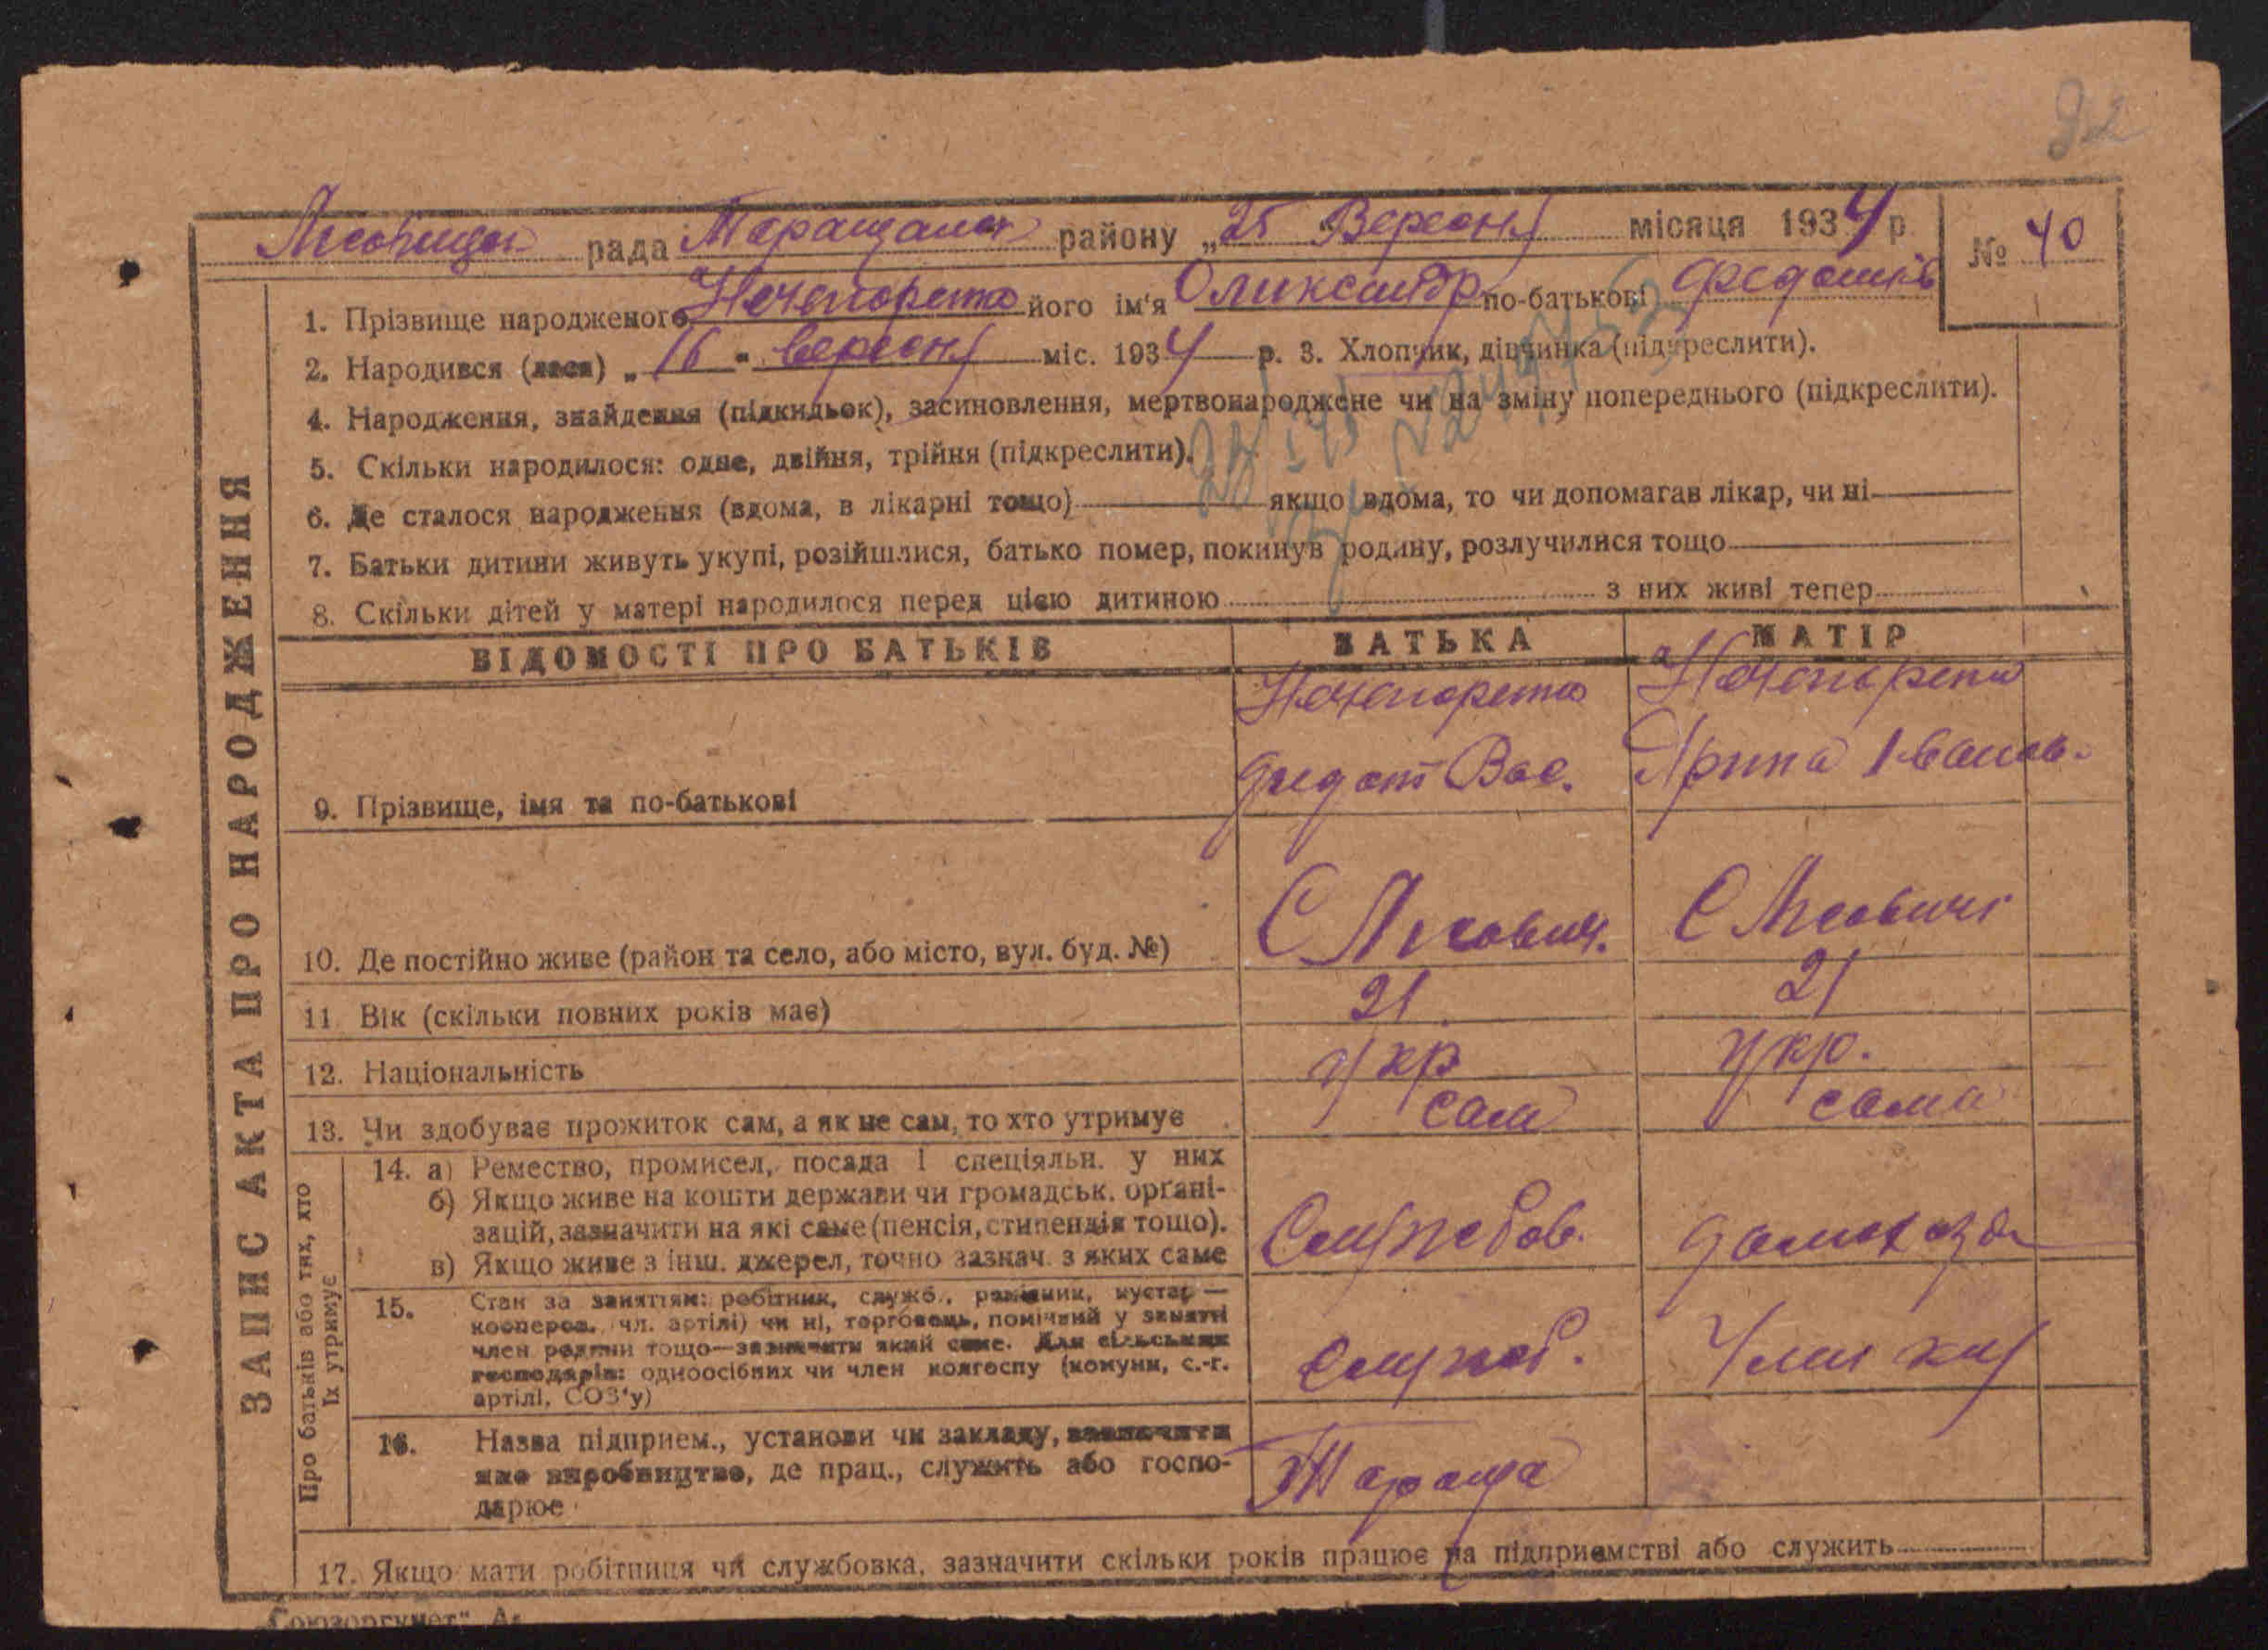 92
Лісовицьк рада Таращанск району „25 Вересня місяця 1934 р. № 40
1. Прізвище народженого Ничепоренко його ім'я Оликсандр по-батькові Федотів
2. Народився (лася) „16" вересня міс. 1934 р. 3. Хлопчик, дівчинка (підкреслити).
4. Народження, знайдення (підкидьок), засиновлення, мертвонароджене чи на зміну попереднього (підкреслити).
5. Скільки народилося: одне, двійня, трійня (підкреслити).
6. Де сталося народження (вдома, в лікарні тощо) якщо вдома, то чи допомагав лікар, чи ні
7. Батьки дитини живуть укупі, розійшлися, батько помер, покинув родину, розлучилися тощо
8. Скільки дітей у матері народилося перед цією дитиною з них живі тепер
ЗАПИС АКТА ПРО НАРОДЖЕННЯ
ВІДОМОСТІ ПРО БАТЬКІВ БАТЬКА МАТІР
9. Прізвище, імя та по-батькові
Федот Вас. Ярина Іванов.
10. Де постійно живе (район та село, або місто, вул. буд. №) С Лісович. С Лісовичі
11 Вік (скільки повних років має) 21 21
12. Національність Укр Укр.
13. Чи здобуває прожиток сам, а як не сам, то хто утримує сам сама
Про батьків або тих, хто
їх утримує
14. а) Ремество, промисел, посада і спеціяльн. у них
б) Якщо живе на кошти держави чи громадськ. орґані-
зацій, зазначити на які саме (пенсія, стипендія тощо).
в) Якщо живе з інш. джерел, точно зазнач. з яких саме
Службов. домохазя
15. Стан за заняттям: робітник, служб., ремісник, кустар —
кооперов. (чл. артілі) чи ні, торговець, помічний у занятті
член родини тощо—зазначити який саме. Для сільських
господарів: одноосібних чи член колгоспу (комуни, с.-г.
артілі, СОЗ'у)
служб. Член
16. Назва підприєм., установи чи закладу, зазначити
яке виробництво, де прац., служить або госпо-
дарює
Тараща
17. Якщо мати робітниця чи службовка, зазначити скільки років працює на підприємстві або служить
„Союзоргучет"